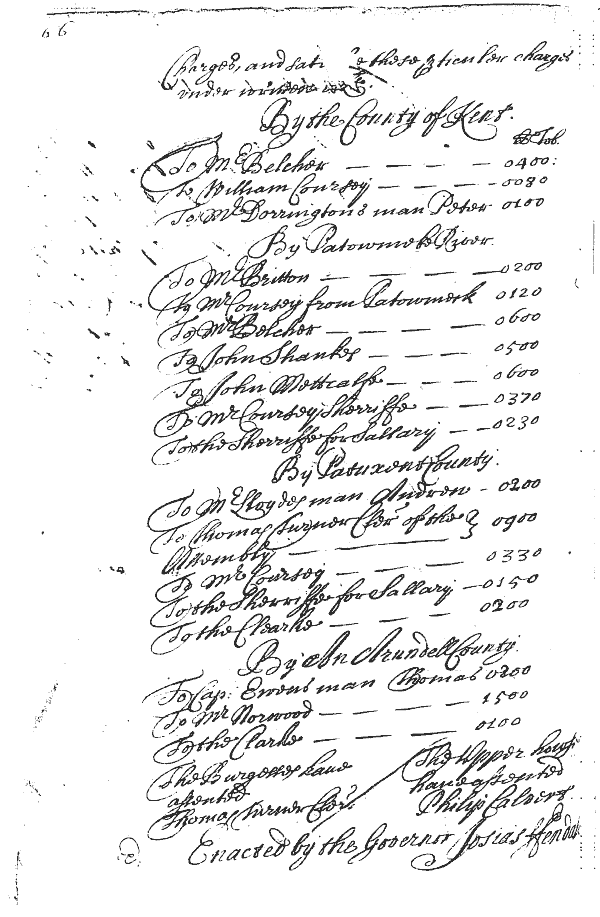 66
Charges, and sati these pticuler charges
under
By the County of Kent.
Tob.
To Mr Belcher — — — — 0400:
To William Coursey — — — — 0080
To Mr Dorringtons man Peter 0100
By Patowmeke River
To Mr Britton — — — — 0200
To Mr Coursey from Patowmeck 0120
To Mr Belcher — — — — 0600
To John Shankes — — — — 0500
To John Mettcalfe — — — — 0600
To Mr Coursey Sherriffe — — — 0370
To the Sherriffe for Sallary — — 0230
By Patuxent County.
To Mr Lloydes man Andrew - 0200
To Thomas Turner Cler of the } 0900
Assembly
To Mr Coursey — — — — 0330
To the Sherriffe for Sallary — 0150
To the Clearke — — — — 0200
By Ann Arundell County.
To Cap: Ewens man Thomas 0200
To Mr Norwood — — — — 1500
To the Clarke — — — — 0100
The Burgesses have
assented
Thomas Turner Cler.
The Upper house
have assented
Philip Calvert
Enacted by the Governor Josias ffendall